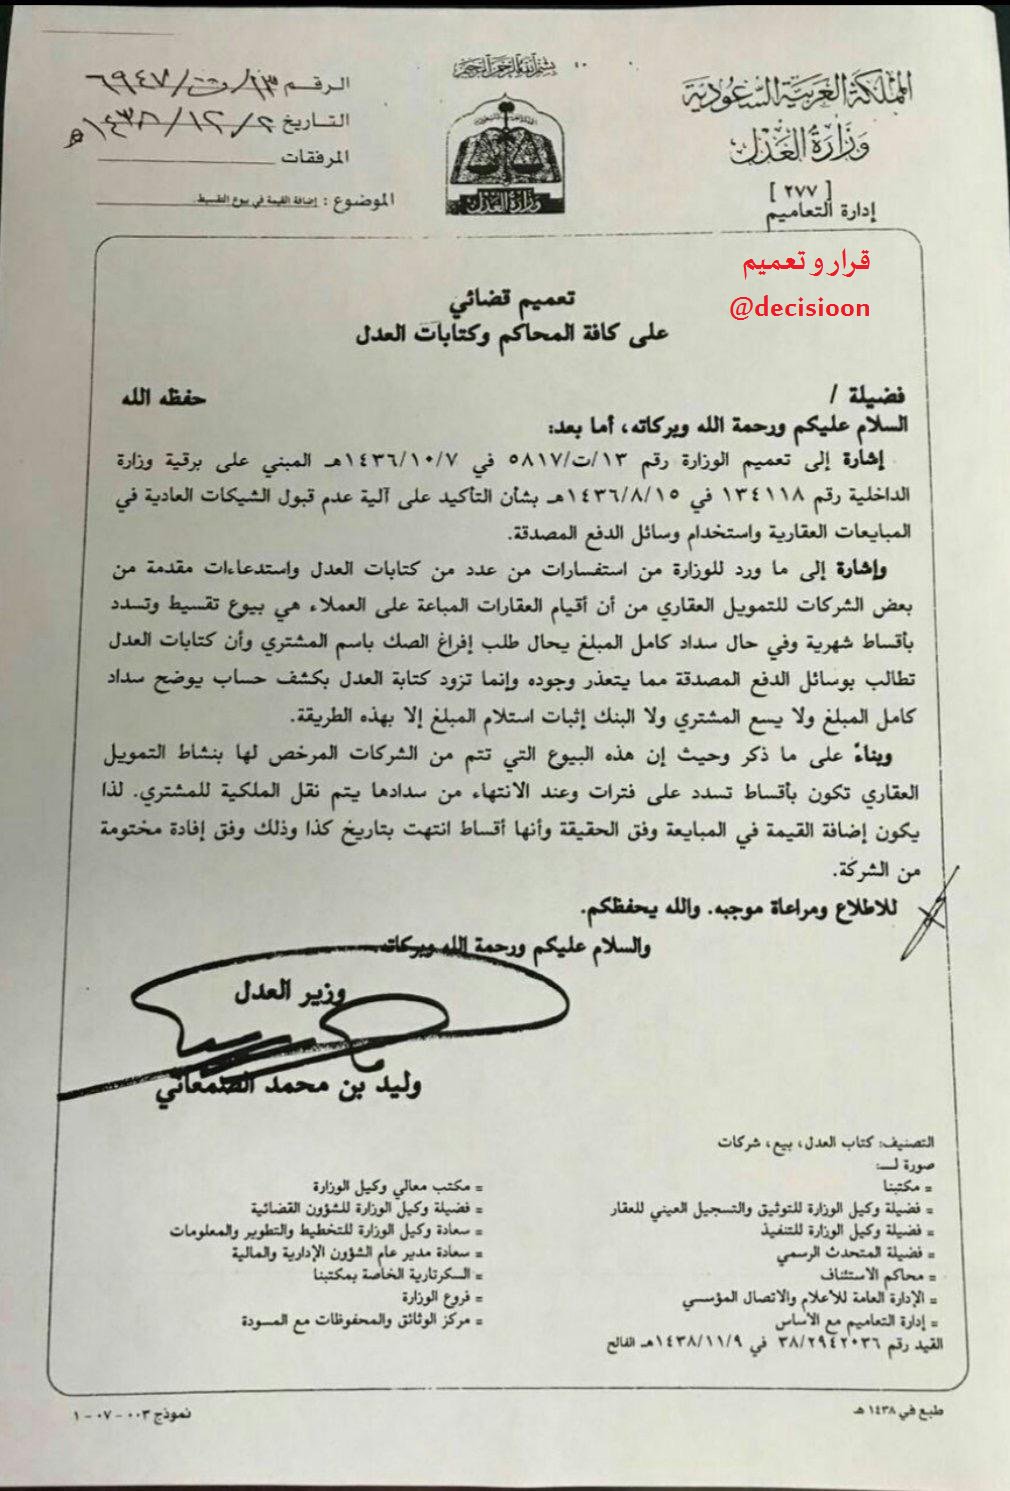 بسم الله الرحمن الرحيم
المملكة العربية السعودية
وزارة العدل
[ ٢٧٧ ]
إدارة التعاميم
وزارة العدل
الرقم ١٣/ت/٦٩٤٧
التاريخ ١٤٣٨/١٢/٢هـ
المرفقات
الموضوع : إضافة القيمة في بيوع التقسيط
قرار و تعميم
@decisioon
تعميم قضائي
على كافة المحاكم وكتابات العدل
فضيلة / حفظه الله
السلام عليكم ورحمة الله وبركاته، أما بعد:
إشارة إلى تعميم الوزارة رقم ١٣/ت/٥٨١٧ في ١٤٣٦/١٠/٧هـ المبني على برقية وزارة
الداخلية رقم ١٣٤١١٨ في ١٤٣٦/٨/١٥هـ بشأن التأكيد على آلية عدم قبول الشيكات العادية في
المبايعات العقارية واستخدام وسائل الدفع المصدقة.
وإشارة إلى ما ورد للوزارة من استفسارات من عدد من كتابات العدل واستدعاءات مقدمة من
بعض الشركات للتمويل العقاري من أن أقيام العقارات المباعة على العملاء هي بيوع تقسيط وتسدد
بأقساط شهرية وفي حال سداد كامل المبلغ يحال طلب إفراغ الصك باسم المشتري وأن كتابات العدل
تطالب بوسائل الدفع المصدقة مما يتعذر وجوده وإنما تزود كتابة العدل بكشف حساب يوضح سداد
كامل المبلغ ولا يسع المشتري ولا البنك إثبات استلام المبلغ إلا بهذه الطريقة.
وبناءً على ما ذكر وحيث إن هذه البيوع التي تتم من الشركات المرخص لها بنشاط التمويل
العقاري تكون بأقساط تسدد على فترات وعند الانتهاء من سدادها يتم نقل الملكية للمشتري. لذا
يكون إضافة القيمة في المبايعة وفق الحقيقة وأنها أقساط انتهت بتاريخ كذا وذلك وفق إفادة مختومة
من الشركة.
للاطلاع ومراعاة موجبه. والله يحفظكم.
والسلام عليكم ورحمة الله وبركاته
وزير العدل
وليد بن محمد الصمعاني
التصنيف: كتاب العدل، بيع، شركات
صورة لـــ:
= مكتبنا
= فضيلة وكيل الوزارة للتوثيق والتسجيل العيني للعقار
= فضيلة وكيل الوزارة للتنفيذ
= فضيلة المتحدث الرسمي
= محاكم الاستئناف
= الإدارة العامة للأعلام والاتصال المؤسسي
= إدارة التعاميم مع الأساس
القيد رقم ٣٨/٢٩٤٢٠٣٦ في ١٤٣٨/١١/٩هـ الفالح
= مكتب معالي وكيل الوزارة
= فضيلة وكيل الوزارة للشؤون القضائية
= سعادة وكيل الوزارة للتخطيط والتطوير والمعلومات
= سعادة مدير عام الشؤون الإدارية والمالية
= السكرتارية الخاصة بمكتبنا
= فروع الوزارة
= مركز الوثائق والمحفوظات مع المسودة
طبع في ١٤٣٨ هـ
نموذج ٠٠٣ - ٠٧ - ١